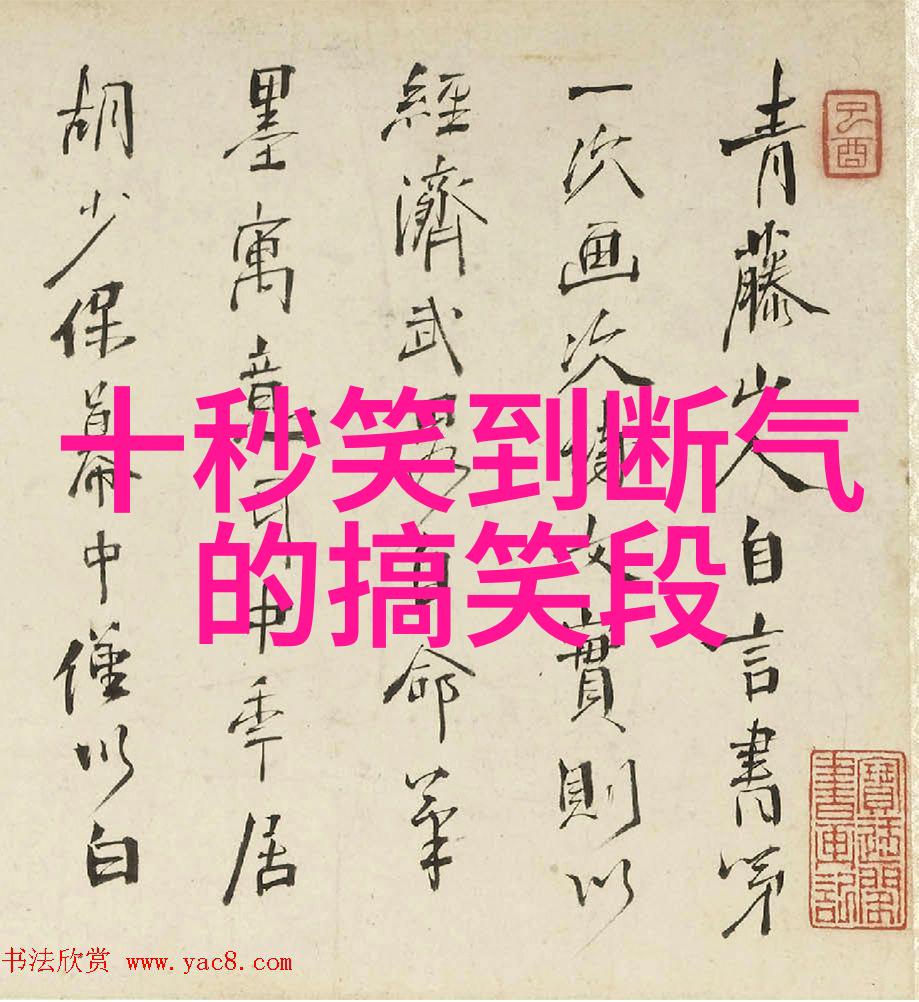 青藤山人自言書第
一次画次文實則以
經濟武略自命筆
墨寓意耳中年居
胡少保幕中僅以白
十秒笑到断气
的搞笑段
书法欣赏 www.yac8.com